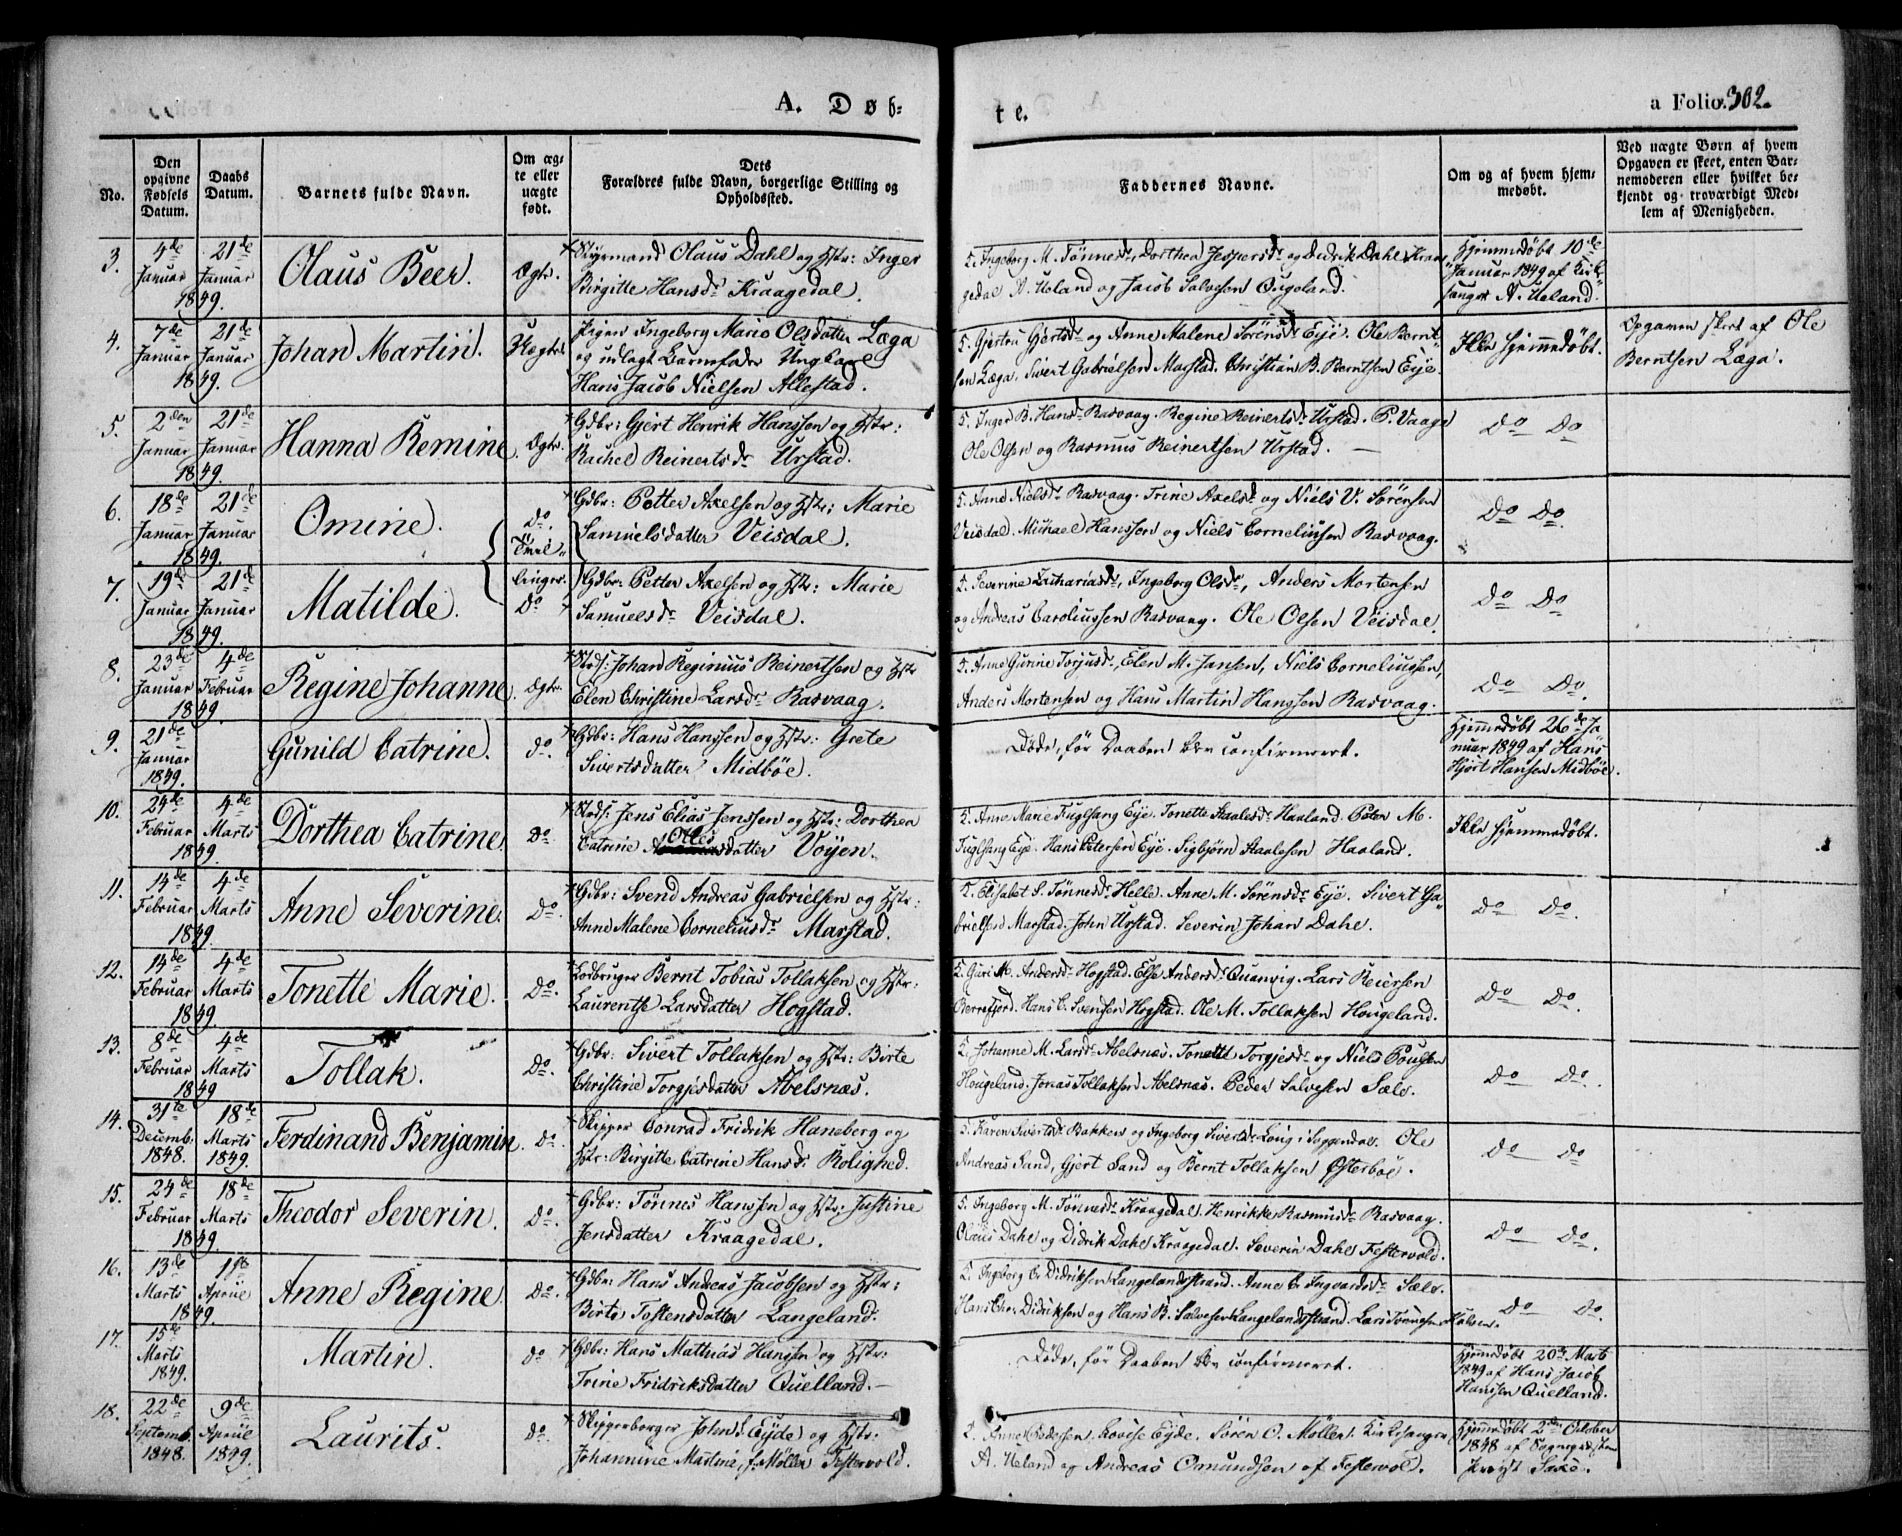 A. Døb-
te.
a Folio 302.
No.
Den opgivne Fødsels Datum.
Daabs Datum.
Barnets fulde Navn.
Om ægte eller uægte født.
Dets Forældres fulde Navn, borgerlige Stilling og Opholdssted.
Faddernes Navne.
Om og af hvem hjemmedøbt.
Ved uægte Børn af hvem Opgaven er skeet, enten Barnemoderen eller hvilket bekjendt og troværdigt Medlem af Menigheden.
3. 4de Januar 1849. 21de Januar
Olaus Beer.
Ægte.
Styrmand Olaus Dahl og Hstr: Inger
Birgitte Hansdr Kraagedal.
Ingeborg M. Tønnesdr, Dorthea Jespersdr og Didrik Dahl Kraa-
gedal A. Ueland og Jacob Salvesen Ougeland.
Hjemmedøbt 10de
Januar 1849 af Kirke-
sanger A. Ueland.
4. 7de Januar 1849. 21de Januar
Johan Martin.
Uægte.
Pigen Ingeborg Marie Olsdatter Læga
og udlagt Barnefader Ungkarl
Hans Jacob Nielsen Allestad.
5. Gjertru Gjertsdr og Anne Malene Sørensdr Eye. Ole Bernt-
sen Læga. Sivert Gabrielsen Marstad. Christian B. Berntsen Eye.
Ikke hjemmedøbt.
Opgaven skeet af Ole
Berntsen Læga.
5. 2den Januar 1849. 21de Januar
Hanna Remine.
Ægte.
Gdbr: Gjert Henrik Hanssen og Hstr:
Rachel Reinertsdr Urstad.
5. Inger B. Hansdr Rasvaag. Regine Reinertsdr Urstad. P. Vaage
Ole Olsen og Rasmus Reinertsen Urstad.
Do Do
6. 18de Januar 1849. 21de Januar
Omine.
Do.
Tvil-
Gdbr: Petter Axelsen og Hstr: Marie
Samuelsdatter Veisdal.
5. Anne Nielsdr Rasvaag. Trine Axelsdr og Niels V. Sørensen
Veisdal. Michael Hanssen og Niels Corneliusen Rasvaag.
Do Do.
7. 19de Januar 1849. 21de Januar
Matilde.
linger.
Do
Gdbr: Petter Axelsen og Hstr: Marie
Samuelsdr Veisdal.
5. Severine Zachariasdr, Ingeborg Olsdr, Anders Mortensen
og Andreas Caroliussen Rasvaag. Ole Olsen Veisdal.
Do Do.
8. 23de Januar 1849. 4de Februar
Regine Johanne.
Ægte.
Strds: Johan Reginius Reinertsen og Hstr
Elen Christine Larsdr Rasvaag.
5. Anne Gurine Torjusdr, Elen M. Jansen, Niels Corneliusen,
Anders Mortensen og Hans Martin Hanssen Rasvaag.
Do Do.
9. 21de Januar 1849.
Gunild Catrine.
Do.
Gdbr: Hans Hanssen og Hstr: Grete
Sivertsdatter Midbøe.
Døde, før Daaben blev confirmeret.
Hjemmedøbt 26de Ja-
nuar 1849 af Hans
Hjort Hansen Midbøe.
10. 24de Februar 1849. 4de Marts
Dorthea Catrine.
Do.
Strds: Jens Elias Jenssen og Hstr: Dorthea
Catrine Olesdatter Vøyen.
5. Anne Marie Fuglsang Eye. Tonette Staalesdr Haaland. Peter M.
Fuglsang Eye. Hans Petersen Eye. Sigbjørn Staalesen Haaland.
Ikke hjemmedøbt.
11. 14de Februar 1849. 4de Marts
Anne Severine.
Do.
Gdbr: Svend Andreas Gabrielsen og Hstr:
Anne Malene Corneliusdr Marstad.
5. Elisabet S. Tønnesdr Helle. Anne M. Sørensdr Eye. Sivert Ga-
brielsen Marstad. John Urstad. Severin Johan Dahl.
Do Do.
12. 14de Februar 1849. 4de Marts
Tonette Marie.
Do.
Jordbruger Bernt Tobias Tollaksen og Hstr:
Laurentse Larsdatter Hogstad.
5. Guri M. Andersdr Hogstad. Else Andersdr Quanvig. Lars Reiersen
Berrefjord. Hans C. Svensen Hogstad. Ole M. Tollaksen Hougeland.
Do Do.
13. 8de Februar 1849 4de Marts
Tollak.
Do.
Gdbr: Sivert Tollaksen og Hstr: Birte
Christine Torgjesdatter Abelsnæs.
5. Johanne M. Larsdr Abelsnæs. Tonette Torgjesdr og Niels Poulsen
Hougeland. Jonas Tollaksen Abelsnæs. Peder Salvesen Sæls.
Do Do.
14. 31te Decemb. 1848. 18de Marts 1849.
Ferdinand Benjamin.
Do.
Skipper Conrad Fridrik Haneberg og
Hstr: Birgitte Catrine Hansdr Rolighed.
5. Karen Sivertsdr Bakken og Ingeborg Sivertsdr Løvig i Soggendal. Ole
Andreas Sand, Gjert Sand og Bernt Tollaksen Østerbøe.
Do Do
15. 24de Februar 1849. 18de Marts
Theodor Severin.
Do.
Gdbr: Tønnes Hanssen og Hstr: Justine
Jensdatter Kraagedal.
5. Ingeborg M. Tønnesdr Kraagedal. Henrikke Rasmusdr Rasvaag.
Olaus Dahl og Didrik Dahl Kraagedal. Severin Dahl Festervold.
Do Do.
16. 13de Marts 1849. 1ste Apriil
Anne Regine.
Do.
Gdbr: Hans Andreas Jacobsen og Hstr:
Birte Tostensdatter Langeland.
5. Ingeborg C. Didriksen Langelandsstrand. Anne C. Ingvardsdr Sæls.
Hans Chr. Didriksen og Hans B. Salvesen Langelandsstrand. Lars Tønnesen
Do Do.
17. 15de Marts 1849.
Martin.
Do
Gdbr: Hans Mathias Hanssen og Hstr:
Trine Fridriksdatter Quelland.
Døde, før Daaben blev confirmeret.
Hjemmedøbt 20de Marts
1849 af Hans Jacob
Hanssen Quelland.
18. 22de Septemb. 1848. 9de Apriil 1849.
Laurits.
Do.
Skipperborger John L. Eyde og Hstr:
Johannine Martine f. Møller Festervold.
Anne Pedersen. Lovise Eyde. Søren O. Møller. Kirkesanger
A. Ueland og Andreas Omundsen af Festervold.
Hjemmedøbt 2den October
1848 af Sognepræsten
Provst Saxe.